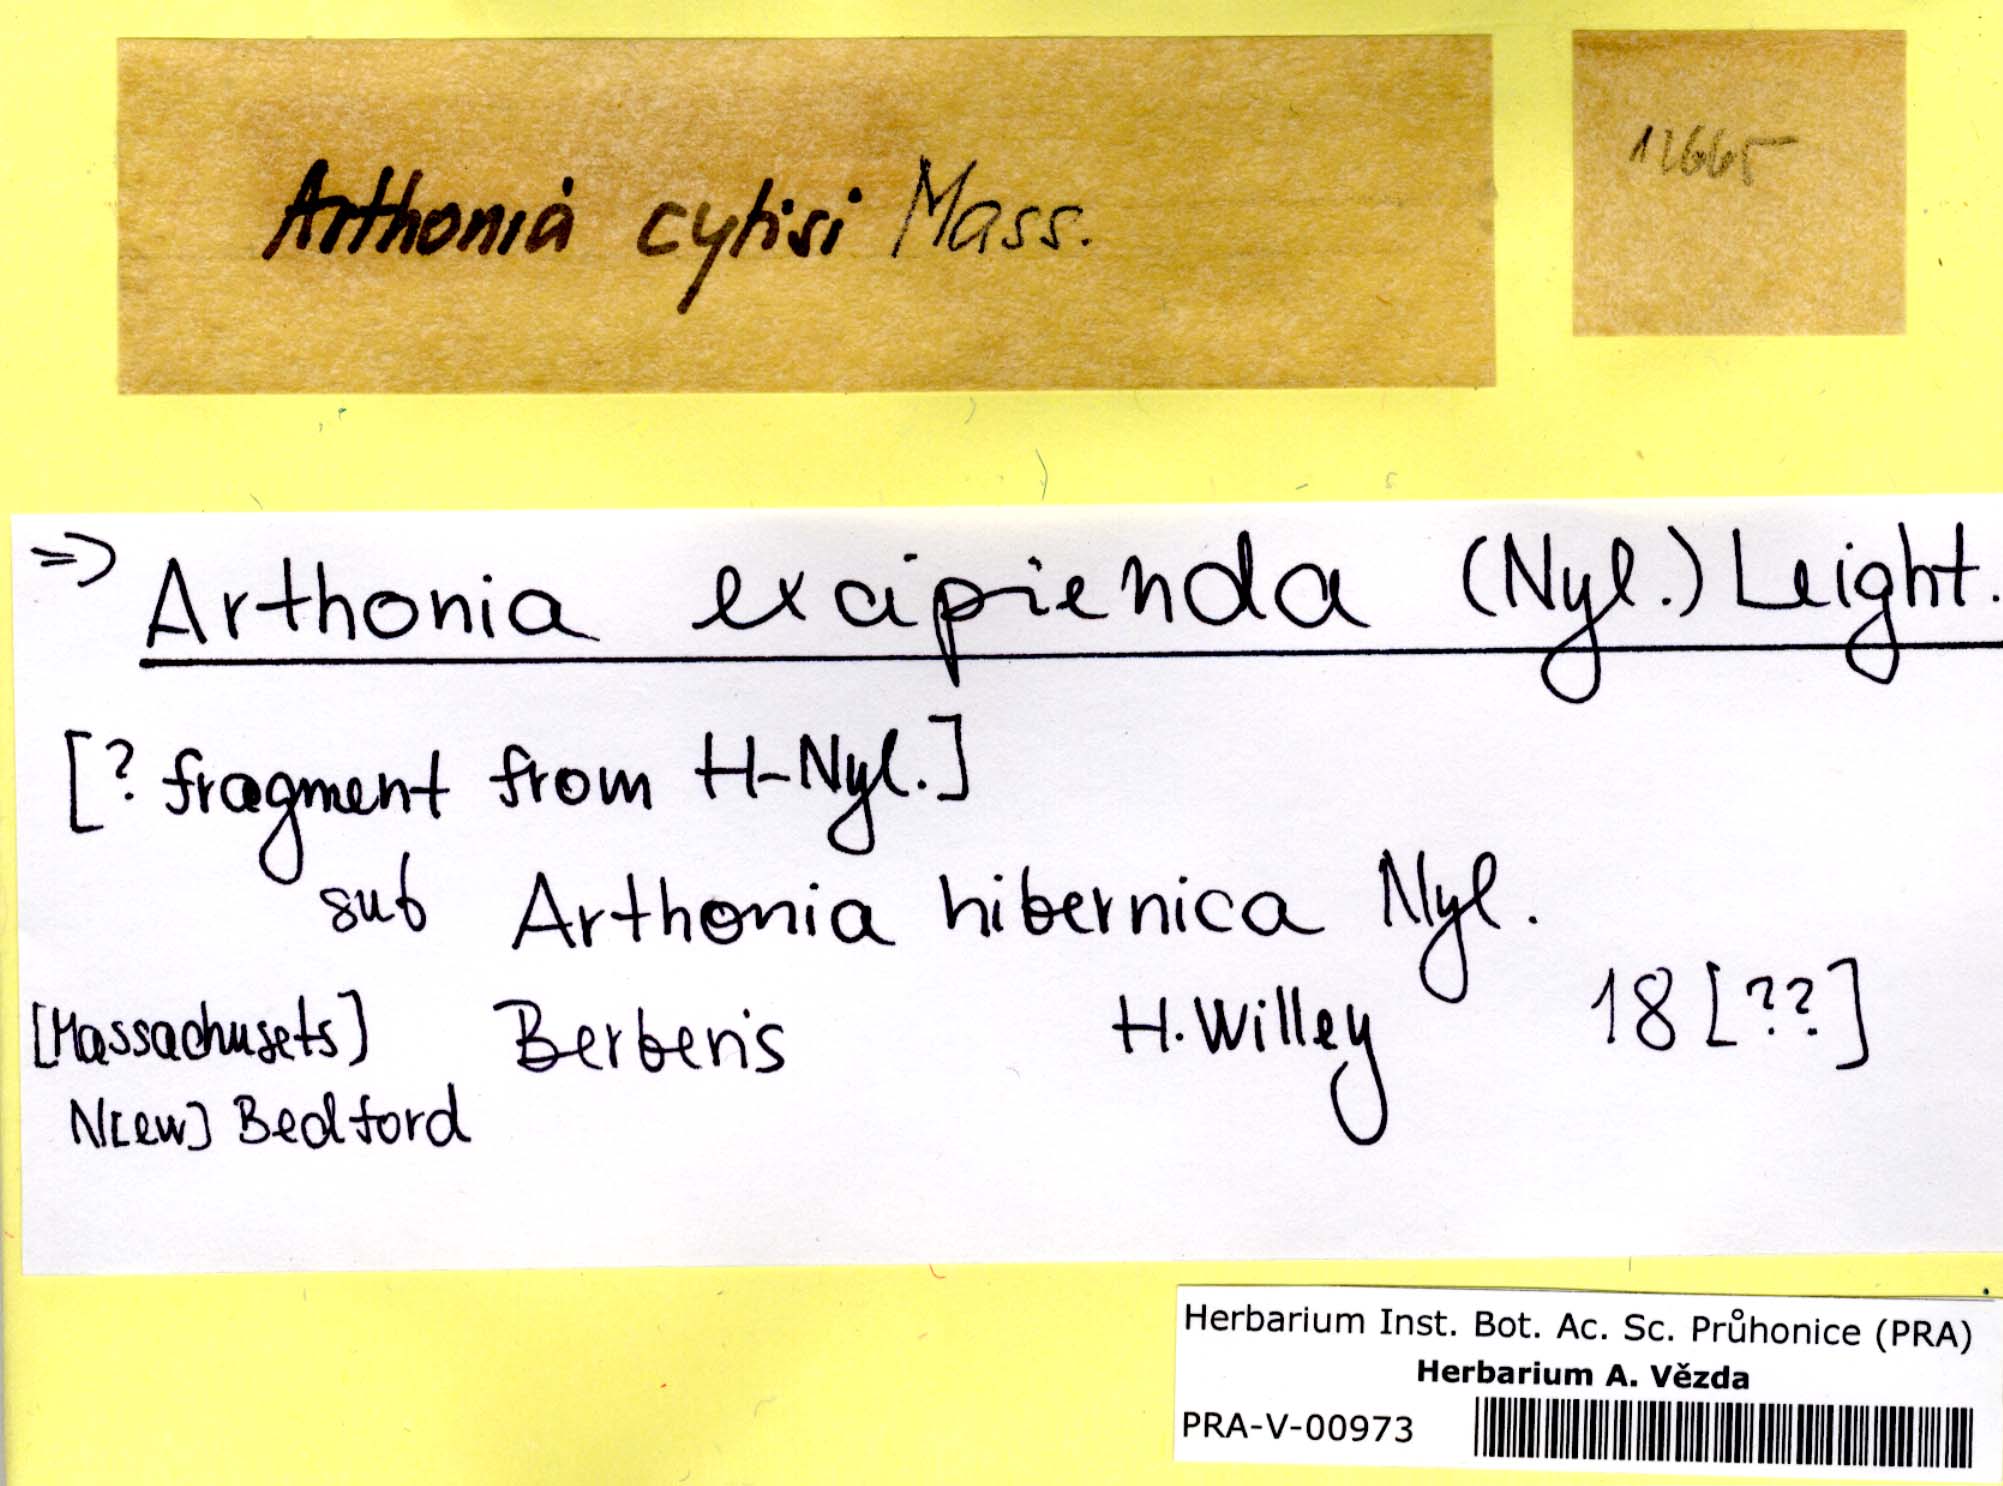 Arthonia cytisi Mass.
12665
=> Arthonia excipienda (Nyl.) Leight.
[? fragment from H-Nyl.]
sub Arthonia hibernica Nyl.
[Massachusets] Berberis H. Willey 18[??]
N[ew] Bedford
Herbarium Inst. Bot. Ac. Sc. Průhonice (PRA)
Herbarium A. Vězda
PRA-V-00973